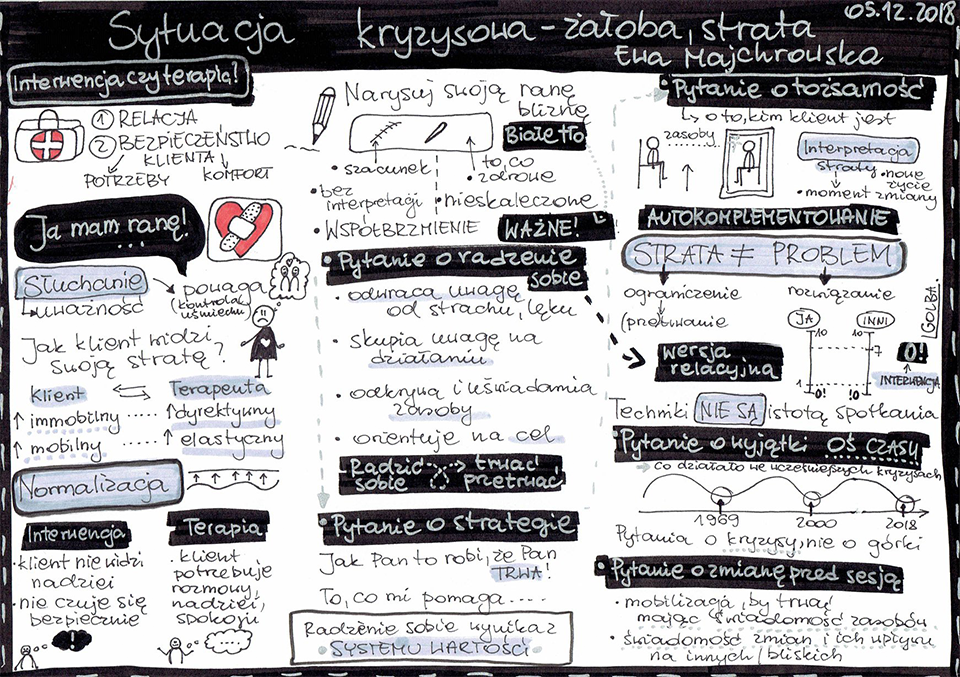 05.12.2018
Sytuacja kryzysowa - żałoba, strata
Ewa Majchrowska
Interwencja czy terapia?
1 RELACJA
2 BEZPIECZEŃSTWO
KLIENTA
POTRZEBY
KOMFORT
Ja mam ranę!
...
Słuchanie
uważność
powaga
(kontrola
uśmiechu)
Jak klient widzi
swoją stratę?
Klient
Terapeuta
immobilny ..... dyrektywny
mobilny ..... elastyczny
Normalizacja
Interwencja
• klient nie widzi
nadziei
• nie czuje się
bezpiecznie
!
Terapia
• klient
potrzebuje
rozmowy,
nadziei,
spokoju
....
Narysuj swoją ranę
bliznę
Białe tło
• szacunek
• to, co
zdrowe
• bez
interpretacji
• nieskaleczone
• WSPÓŁBRZMIENIE
WAŻNE!
• Pytanie o radzenie
sobie
• odwraca uwagę
od strachu, lęku
• skupia uwagę na
działaniu
• odkrywa i uświadamia
zasoby
• orientuje na cel
Radzić
sobie
trwać
przetrwać
• Pytanie o strategie
Jak Pan to robi, że Pan
TRWA!
To, co mi pomaga ....
Radzenie sobie wynika z
• SYSTEMU WARTOŚCI •
• Pytanie o tożsamość
o to, kim klient jest
zasoby
Interpretacja
straty
• nowe
życie
• moment zmiany
AUTOKOMPLEMENTOWANIE
STRATA ≠ PROBLEM
ograniczenie
(przetrwanie
rozwiązanie
JA
INNI
10
10
7
1
0!
0!
0!
INTERWENCJA
wersja
relacyjna
Techniki NIE SĄ istotą spotkania
• Pytanie o wyjątki OŚ CZASU
co działało we wcześniejszych kryzysach
1969
2000
2018
Pytania o kryzysy, nie o górki
• Pytanie o zmianę przed sesją
• mobilizacja, by trwać
mając świadomość zasobów
• świadomość zmian i ich wpływu
na innych/bliskich